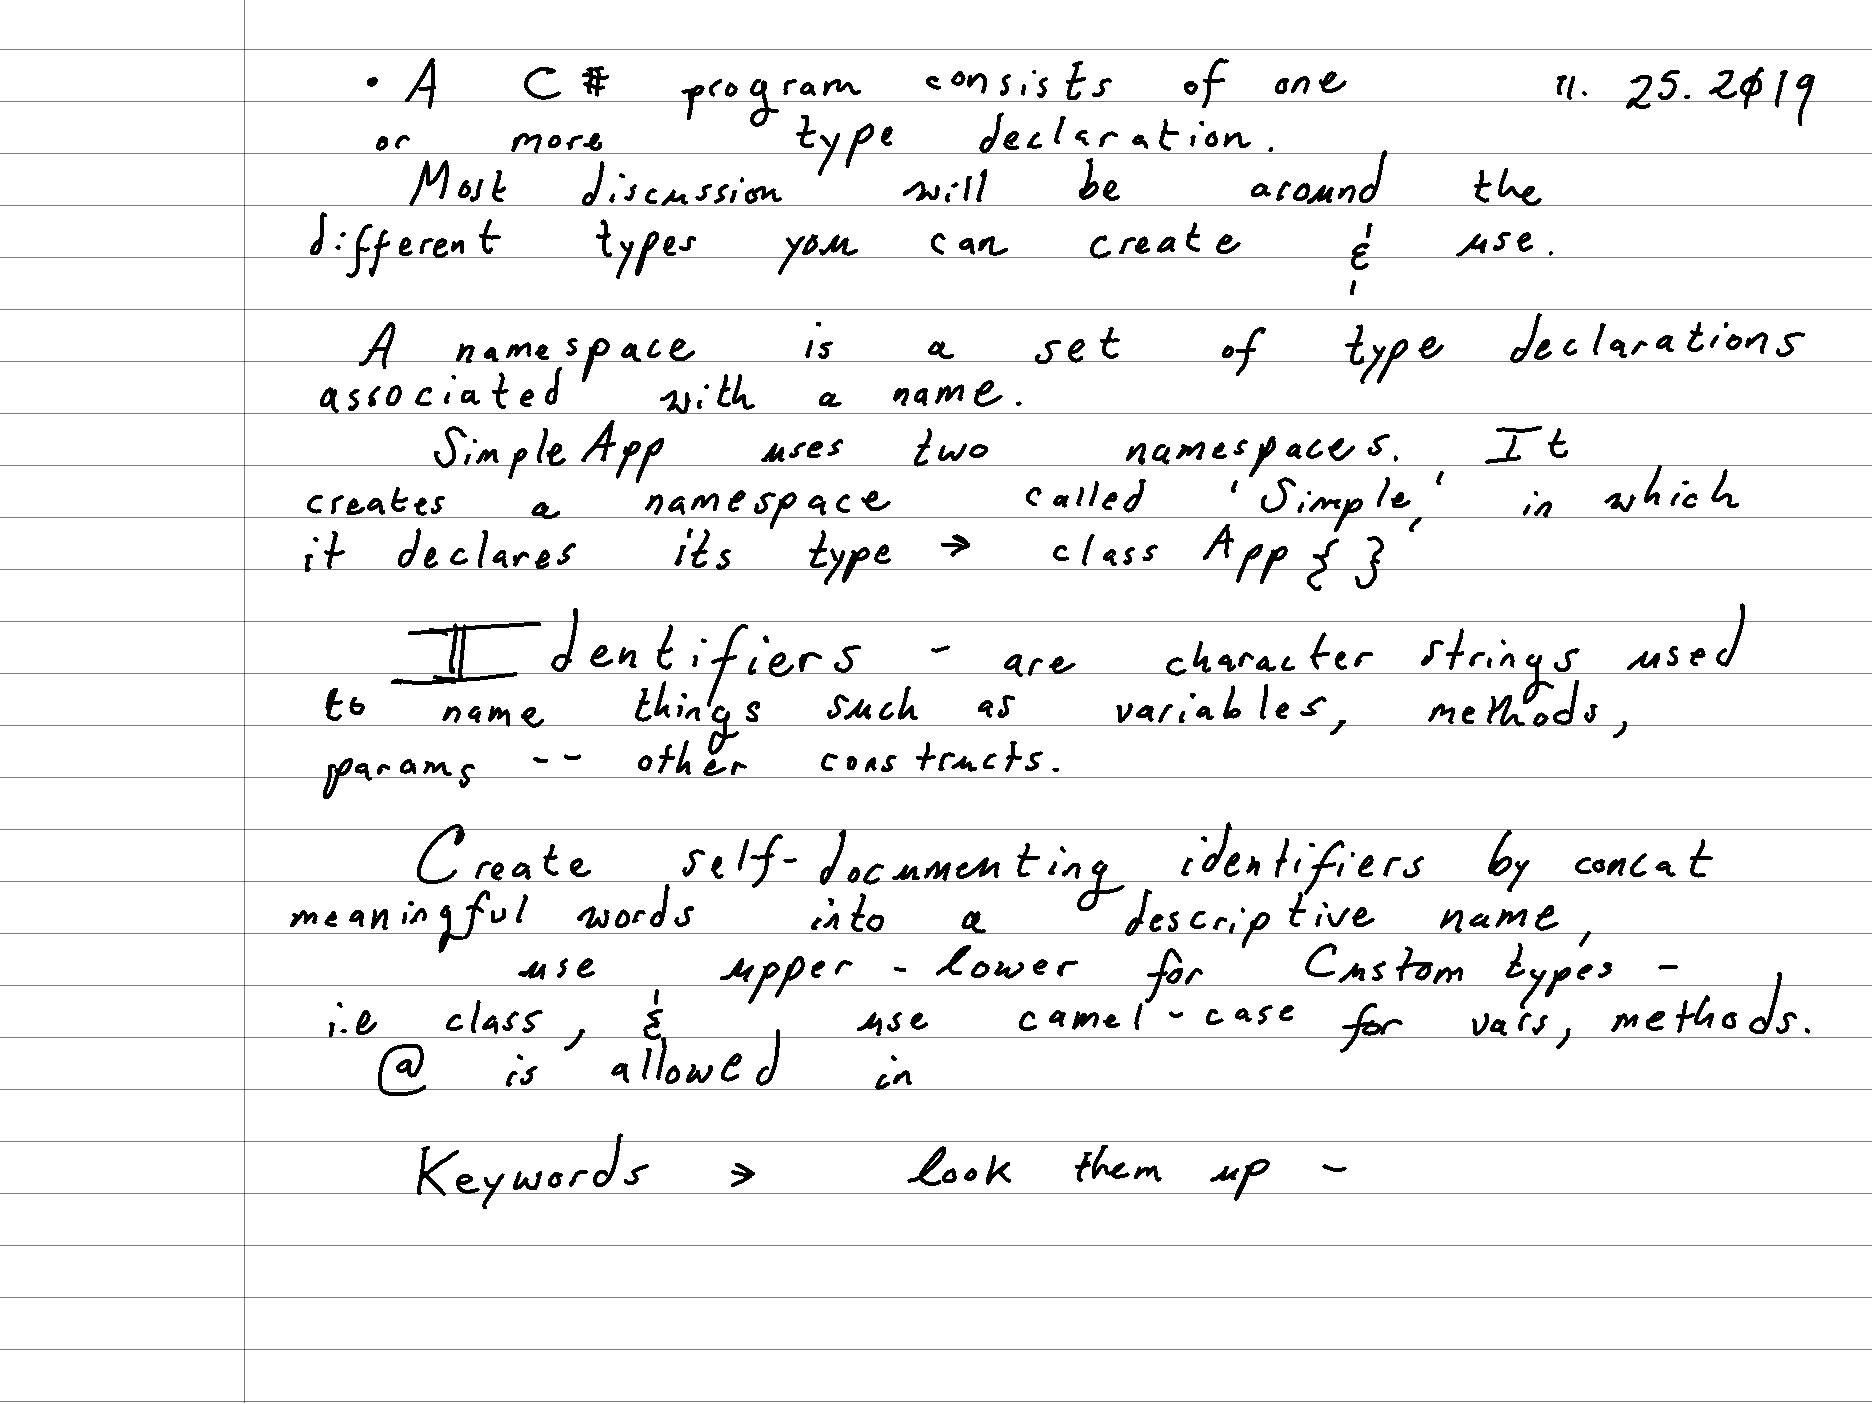 • A C# program consists of one 11. 25. 2019
or more type declaration.
Most discussion will be around the
different types you can create & use.
A namespace is a set of type declarations
associated with a name.
SimpleApp uses two namespaces. It
creates a namespace called 'Simple,' in which
it declares its type → class App { }
Identifiers - are character strings used
to name things such as variables, methods,
params -- other constructs.
Create self-documenting identifiers by concat
meaningful words into a descriptive name,
use upper - lower for Custom types -
i.e class, & use camel-case for vars, methods.
@ is allowed in
Keywords → look them up -